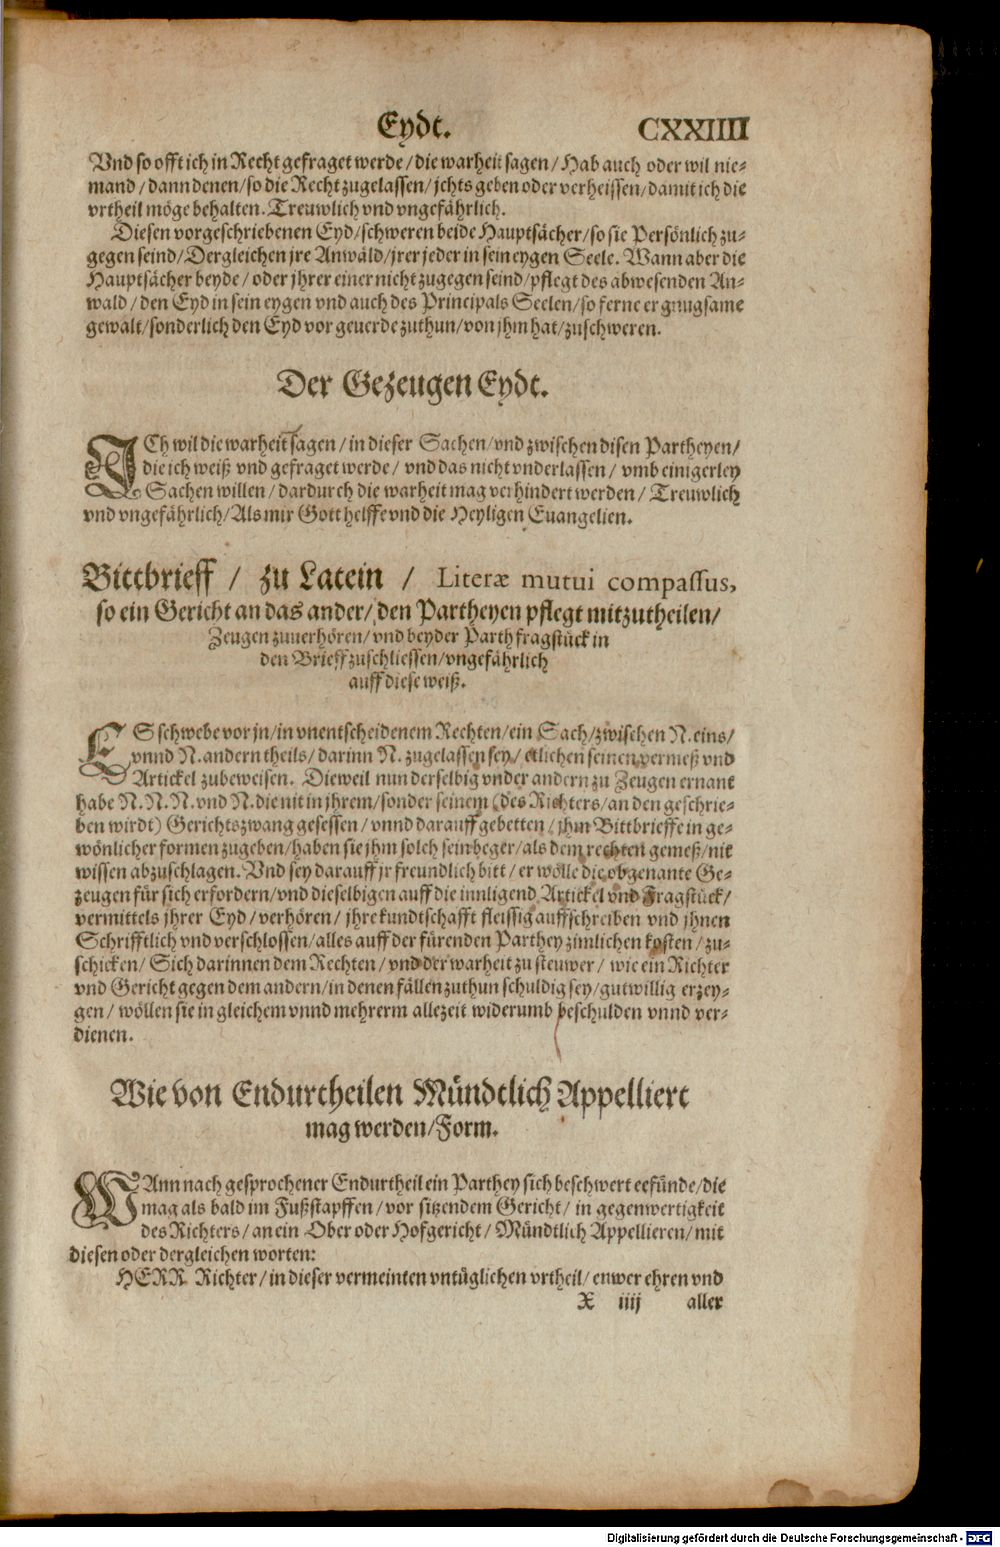 Eydt. CXXIIII
Vnd so offt ich in Recht gefraget werde / die warheit sagen / Hab auch oder wil nie-
mand / dann denen / so die Recht zugelassen / jchts geben oder verheissen / damit ich die
vrtheil möge behalten. Treuwlich vnd vngefährlich.
Diesen vorgeschriebenen Eyd / schweren beide Hauptsächer / so sie Persönlich zu-
gegen seind / Dergleichen jre Anwäld / jrer jeder in sein eygen Seele. Wann aber die
Hauptsächer beyde / oder jhrer einer nicht zugegen seind / pflegt des abwesenden An-
wald / den Eyd in sein eygen vnd auch des Principals Seelen / so ferne er gnugsame
gewalt / sonderlich den Eyd vor geuerde zuthun / von jhm hat / zuschweren.
Der Gezeugen Eydt.
ICh wil die warheit sagen / in dieser Sachen / vnd zwischen disen Partheyen /
die ich weiß vnd gefraget werde / vnd das nicht vnderlassen / vmb einigerley
Sachen willen / dardurch die warheit mag verhindert werden / Treuwlich
vnd vngefährlich / Als mir Gott helffe vnd die Heyligen Euangelien.
Bittbrieff / zu Latein / Literæ mutui compassus,
so ein Gericht an das ander / den Partheyen pflegt mitzutheilen /
Zeugen zuuerhören / vnd beyder Parth fragstück in
den Brieff zuschliessen / vngefährlich
auff diese weiß.
ES schwebe vor jn / in vnentscheidenem Rechten / ein Sach / zwischen N. eins /
vnnd N. andern theils / darinn N. zugelassen sey / etlichen seinen vermeß vnd
Artickel zubeweisen. Dieweil nun derselbig vnder andern zu Zeugen ernant
habe N. N. N. vnd N. die nit in jhrem / sonder seinem (des Richters / an den geschrie-
ben wirdt) Gerichtszwang gesessen / vnnd darauff gebetten / jhm Bittbrieffe in ge-
wönlicher formen zugeben / haben sie jhm solch sein beger / als dem rechten gemeß / nit
wissen abzuschlagen. Vnd sey darauff jr freundlich bitt / er wölle die obgenante Ge-
zeugen für sich erfordern / vnd dieselbigen auff die innligend Artickel vnd Fragstück /
vermittels jhrer Eyd / verhören / jhre kundtschafft fleissig auffschreiben vnd jhnen
Schrifftlich vnd verschlossen / alles auff der fürenden Parthey zimlichen kosten / zu-
schicken / Sich darinnen dem Rechten / vnd der warheit zu steuwer / wie ein Richter
vnd Gericht gegen dem andern / in denen fällen zuthun schuldig sey / gutwillig erzey-
gen / wöllen sie in gleichem vnnd mehrerm allezeit widerumb beschulden vnnd ver-
dienen.
Wie von Endurtheilen Mündtlich Appelliert
mag werden / Form.
WAnn nach gesprochener Endurtheil ein Parthey sich beschwert eefünde / die
mag als bald im Fußstapffen / vor sitzendem Gericht / in gegenwertigkeit
des Richters / an ein Ober oder Hofgericht / Mündtlich Appellieren / mit
diesen oder dergleichen worten:
HERR Richter / in dieser vermeinten vntüglichen vrtheil / euwer ehren vnd
X iiij aller
Digitalisierung gefördert durch die Deutsche Forschungsgemeinschaft - DFG